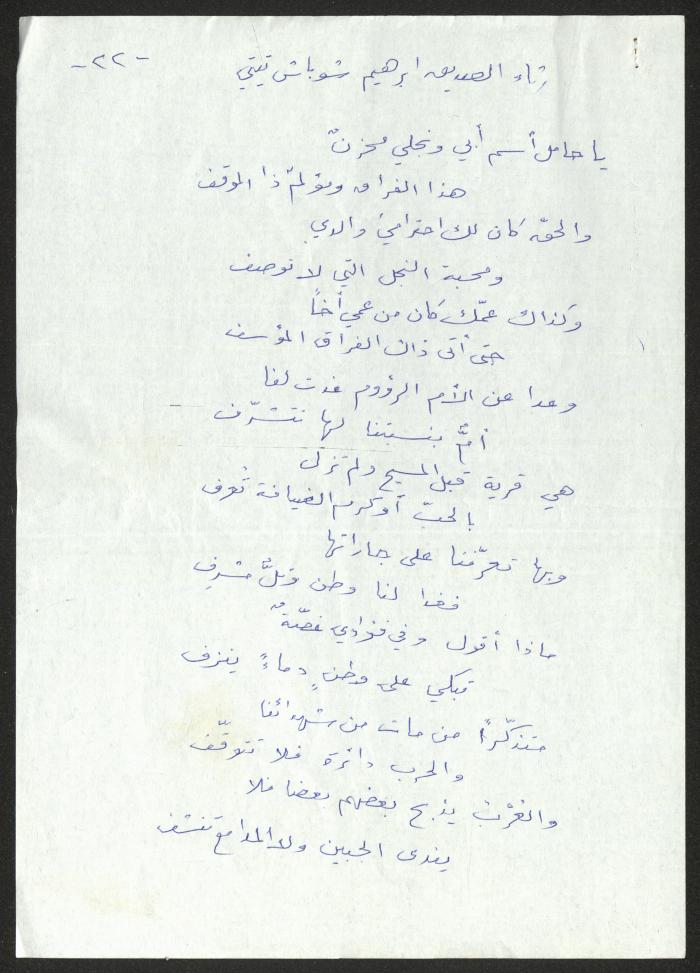 -٢٢-
رثاء الصديق ابرهيم شوباش تيتي
يا حامل أسم أبي ونجلي محزنٌ
هذا الفراق ومؤلمٌ ذا الموقف
والحقّ كان لك احترامي والدي
ومحبة النجل التي لا توصف
وكذاك عمّك كان من عمي أخاً
حتى أتى ذاك الفراق المؤسف
وعدا عن الأم الرؤوم غدت لنا
أمٌّ بنسبتنا لها نتشرّف
هي قرية قبل المسيح ولم تزل
بالحبّ أو كرم الضيافة تُعرف
وبها تعرّفنا على جاراتها
فغدا لنا وطن وتلٌّ مشرف
ماذا أقول وفي فؤادي غصّةٌ
تبكي على وطنٍ دماءً ينزف
متذكّراً من مات من شهدائنا
والحرب دائرة فلا تتوقّف
والعُرْب يذبح بعضهم بعضا فلا
يندى الجبين ولا المدامع تنشف